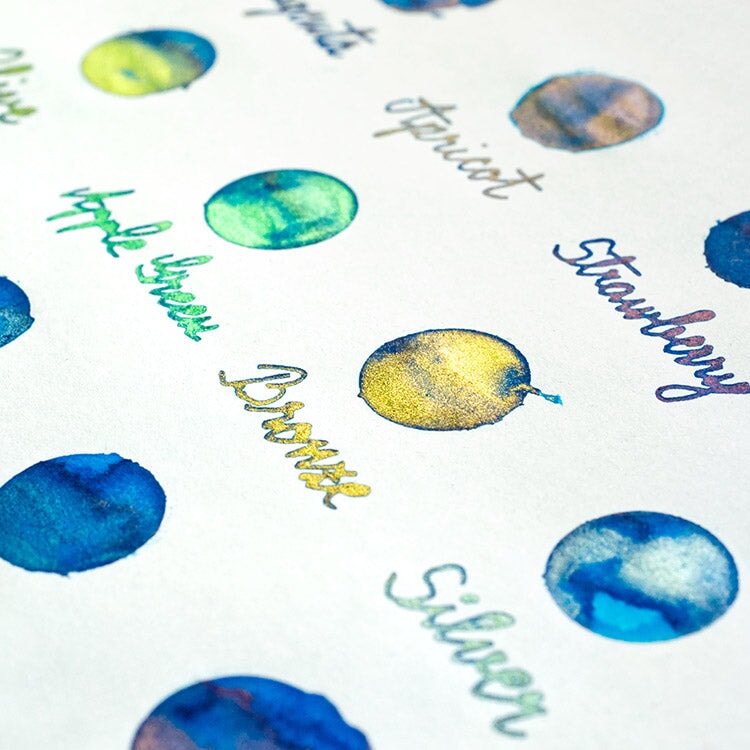 Apricot
Apple Green
Strawberry
Bronze
Silver